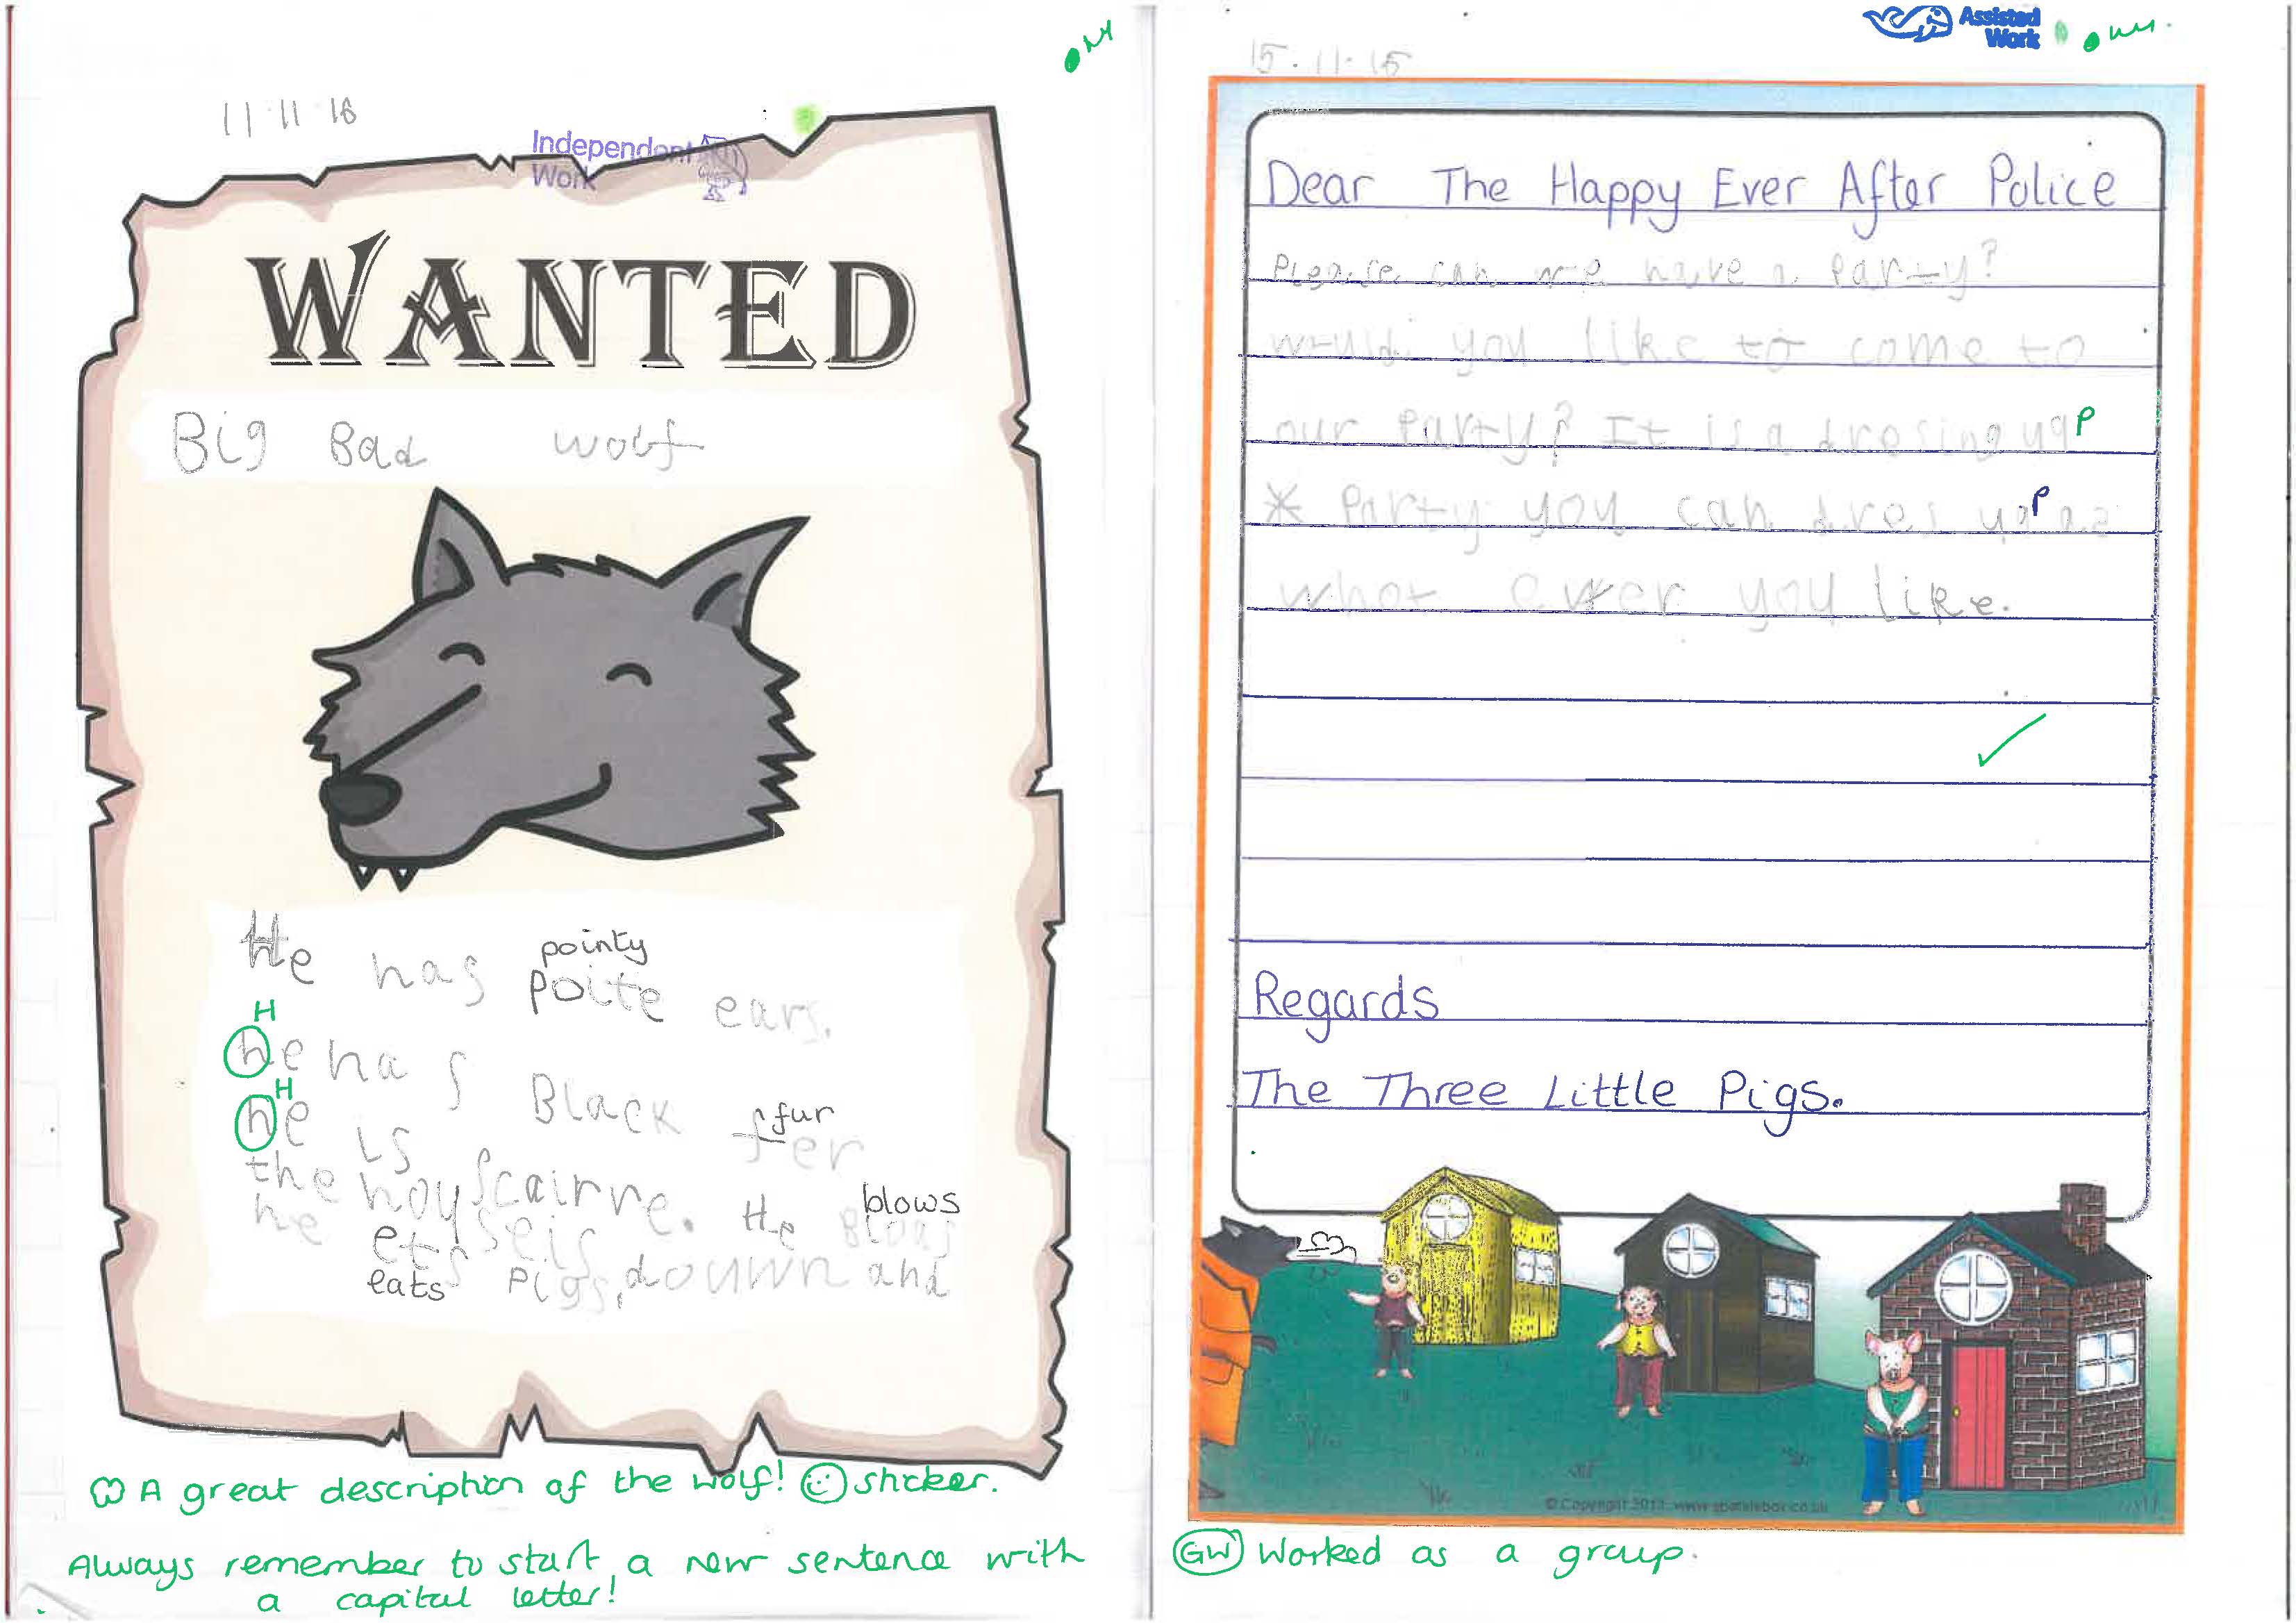 11.11.16
Independent
Work
WANTED
Big Bad wolf
pointy
He has poite ears.
H
he has Black fer
fur
H
he is scairre. He Bloas
blows
the houseis douwn and
he ets Pigs.
eats
A great description of the wolf! sticker.
Always remember to start a new sentence with
a capital letter!
Assisted
Work
15.11.16
Dear The Happy Ever After Police
Please can we have a Party?
would you like to come to
our Party? It is a dresing up
* Party you can dres up as
what ever you like.
Regards
The Three Little Pigs.
© Copyright www.sparklebox.co.uk
GW Worked as a group.